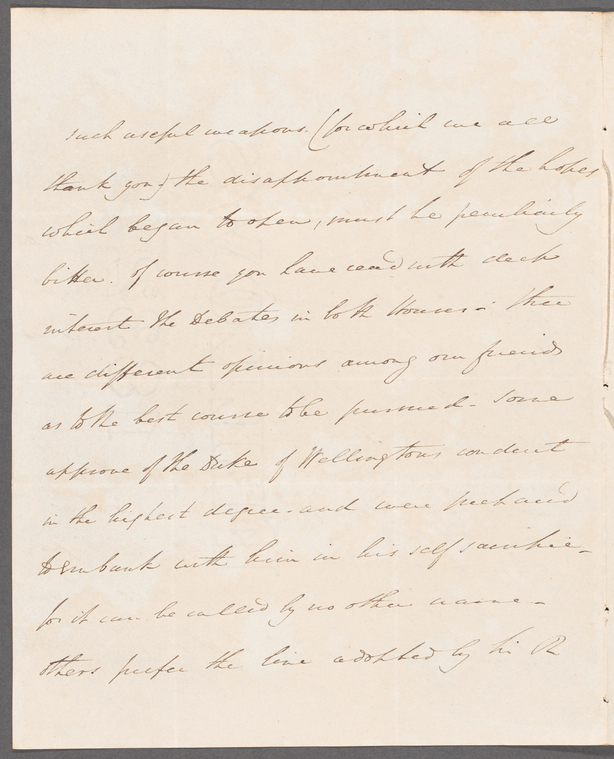 such useful weapons. (for which we all
thank you) the disappointment of the hopes
which began to open, must be peculiarly
bitter. Of course you have read with deep
interest the Debates in both Houses - there
are different opinions among our friends
as to the best course to be pursued - some
approve of the Duke of Wellingtons conduct
in the highest degree - and were prepared
to embark with him in his self sacrifice -
for it can be called by no other name -
others prefer the line adopted by Sir R